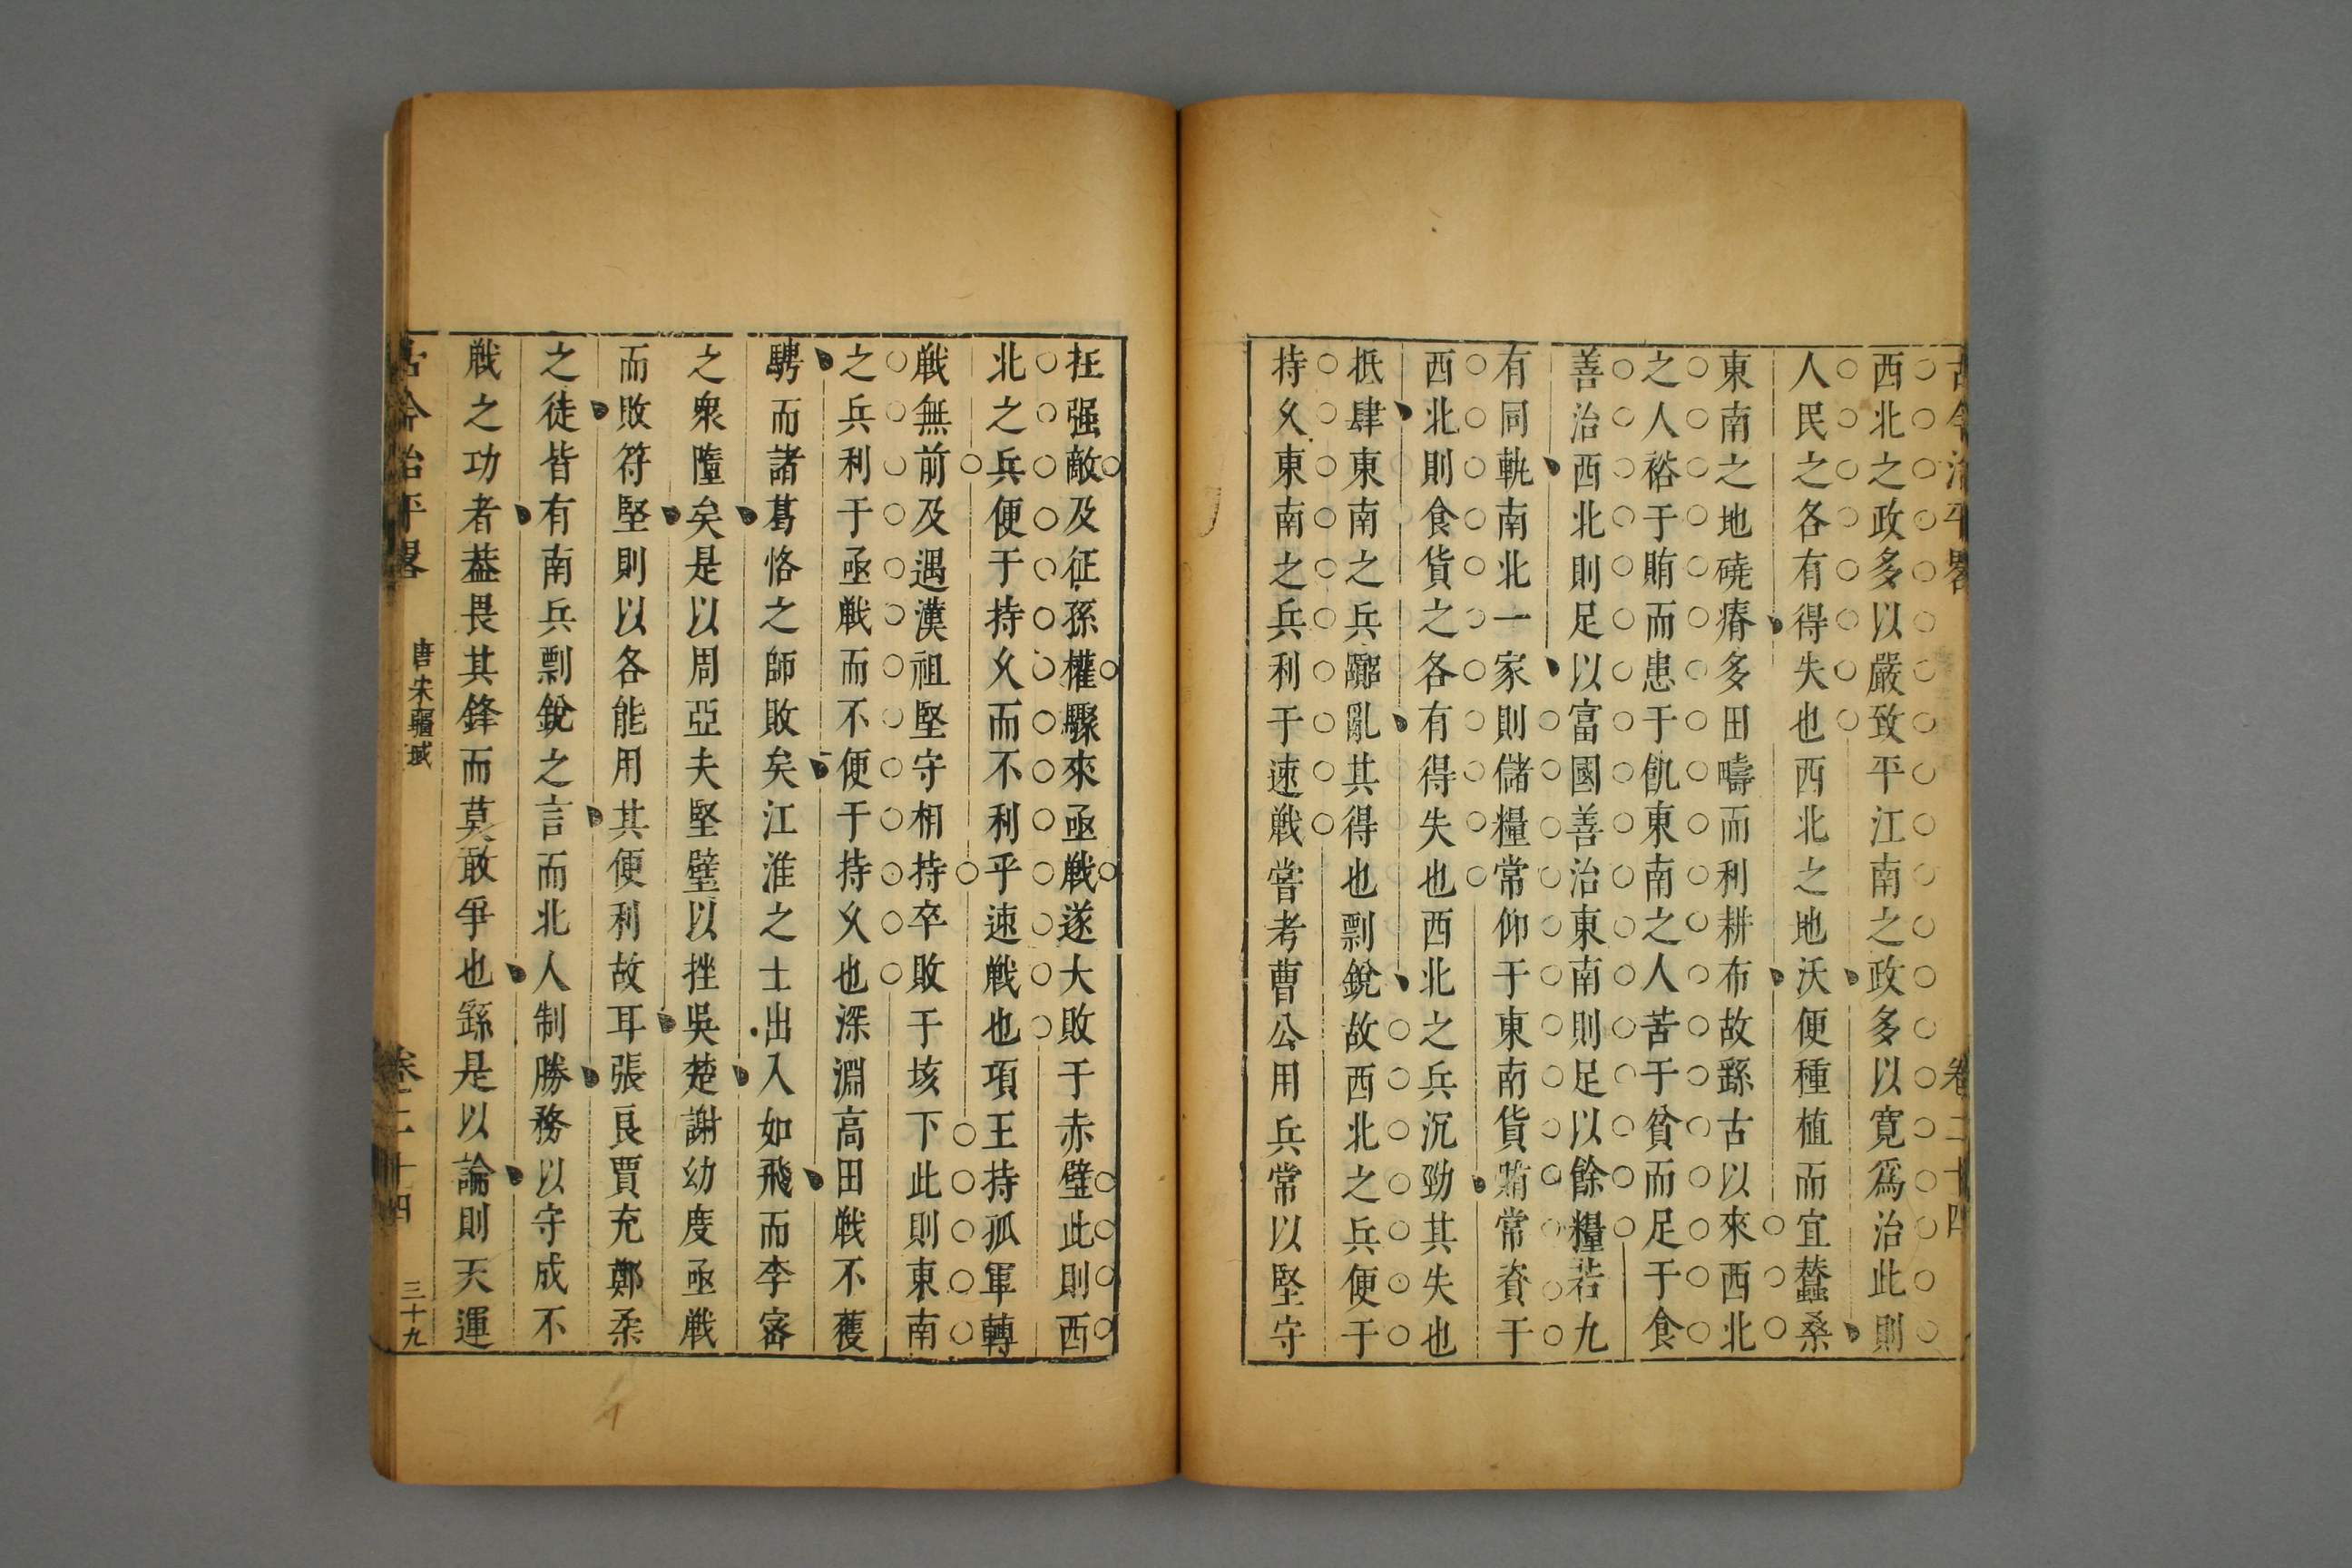 古今治平畧 卷二十四
西北之政多以嚴致平江南之政多以寬爲治此則
人民之各有得失也西北之地沃便種植而宜蠶桑
東南之地磽瘠多田疇而利耕布故繇古以來西北
之人裕于賄而患于飢東南之人苦于貧而足于食
善治西北則足以富國善治東南則足以餘糧若九
有同軌南北一家則儲糧常仰于東南貨賄常資于
西北則食貨之各有得失也西北之兵沉勁其失也
抵肆東南之兵躁亂其得也剽銳故西北之兵便于
持久東南之兵利于速戰嘗考曹公用兵常以堅守
抂强敵及征孫權驟來亟戰遂大敗于赤壁此則西
北之兵便于持久而不利乎速戰也項王持孤軍轉
戰無前及遇漢祖堅守相持卒敗于垓下此則東南
之兵利于亟戰而不便于持久也深淵高田戰不蒦
騁而諸葛恪之師敗矣江淮之士出入如飛而李密
之衆隳矣是以周亞夫堅壁以挫吳楚謝幼度亟戰
而敗符堅則以各能用其便利故耳張良賈充鄭柔
之徒皆有南兵剽銳之言而北人制勝務以守成不
戰之功者葢畏其鋒而莫敢爭也繇是以論則天運
古今治平畧 唐宋疆域 卷二十四 三十九